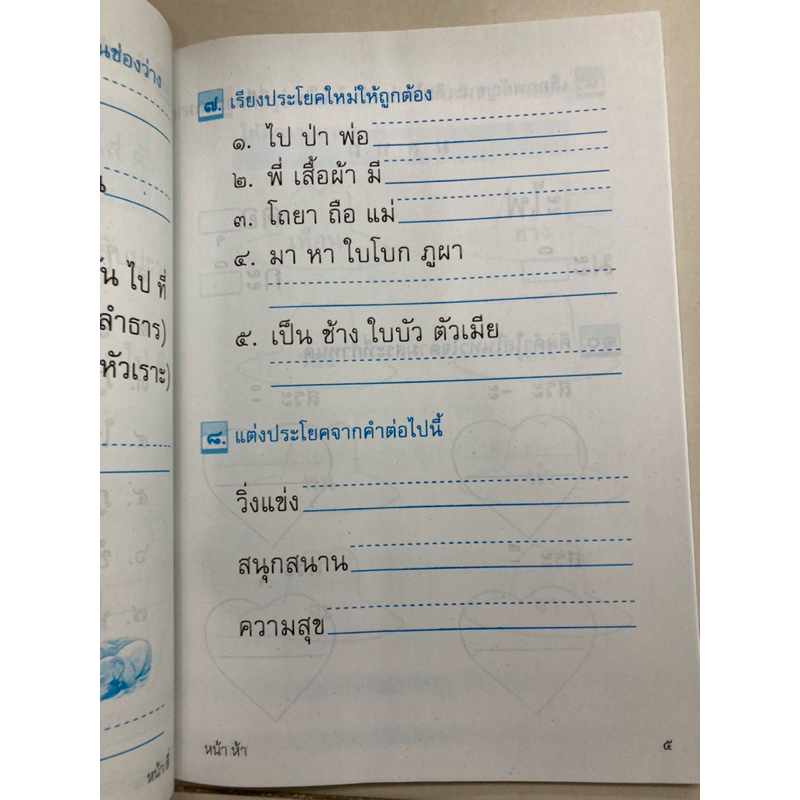 นช่องว่าง
น
ั้น ไป ที่
ลำธาร)
หัวเราะ)
หน้า สี่
๗. เรียงประโยคใหม่ให้ถูกต้อง
๑. ไป ป่า พ่อ
๒. พี่ เสื้อผ้า มี
๓. โถยา ถือ แม่
๔. มา หา ใบโบก ภูผา
๕. เป็น ช้าง ใบบัว ตัวเมีย
๘. แต่งประโยคจากคำต่อไปนี้
วิ่งแข่ง
สนุกสนาน
ความสุข
หน้า ห้า
๕